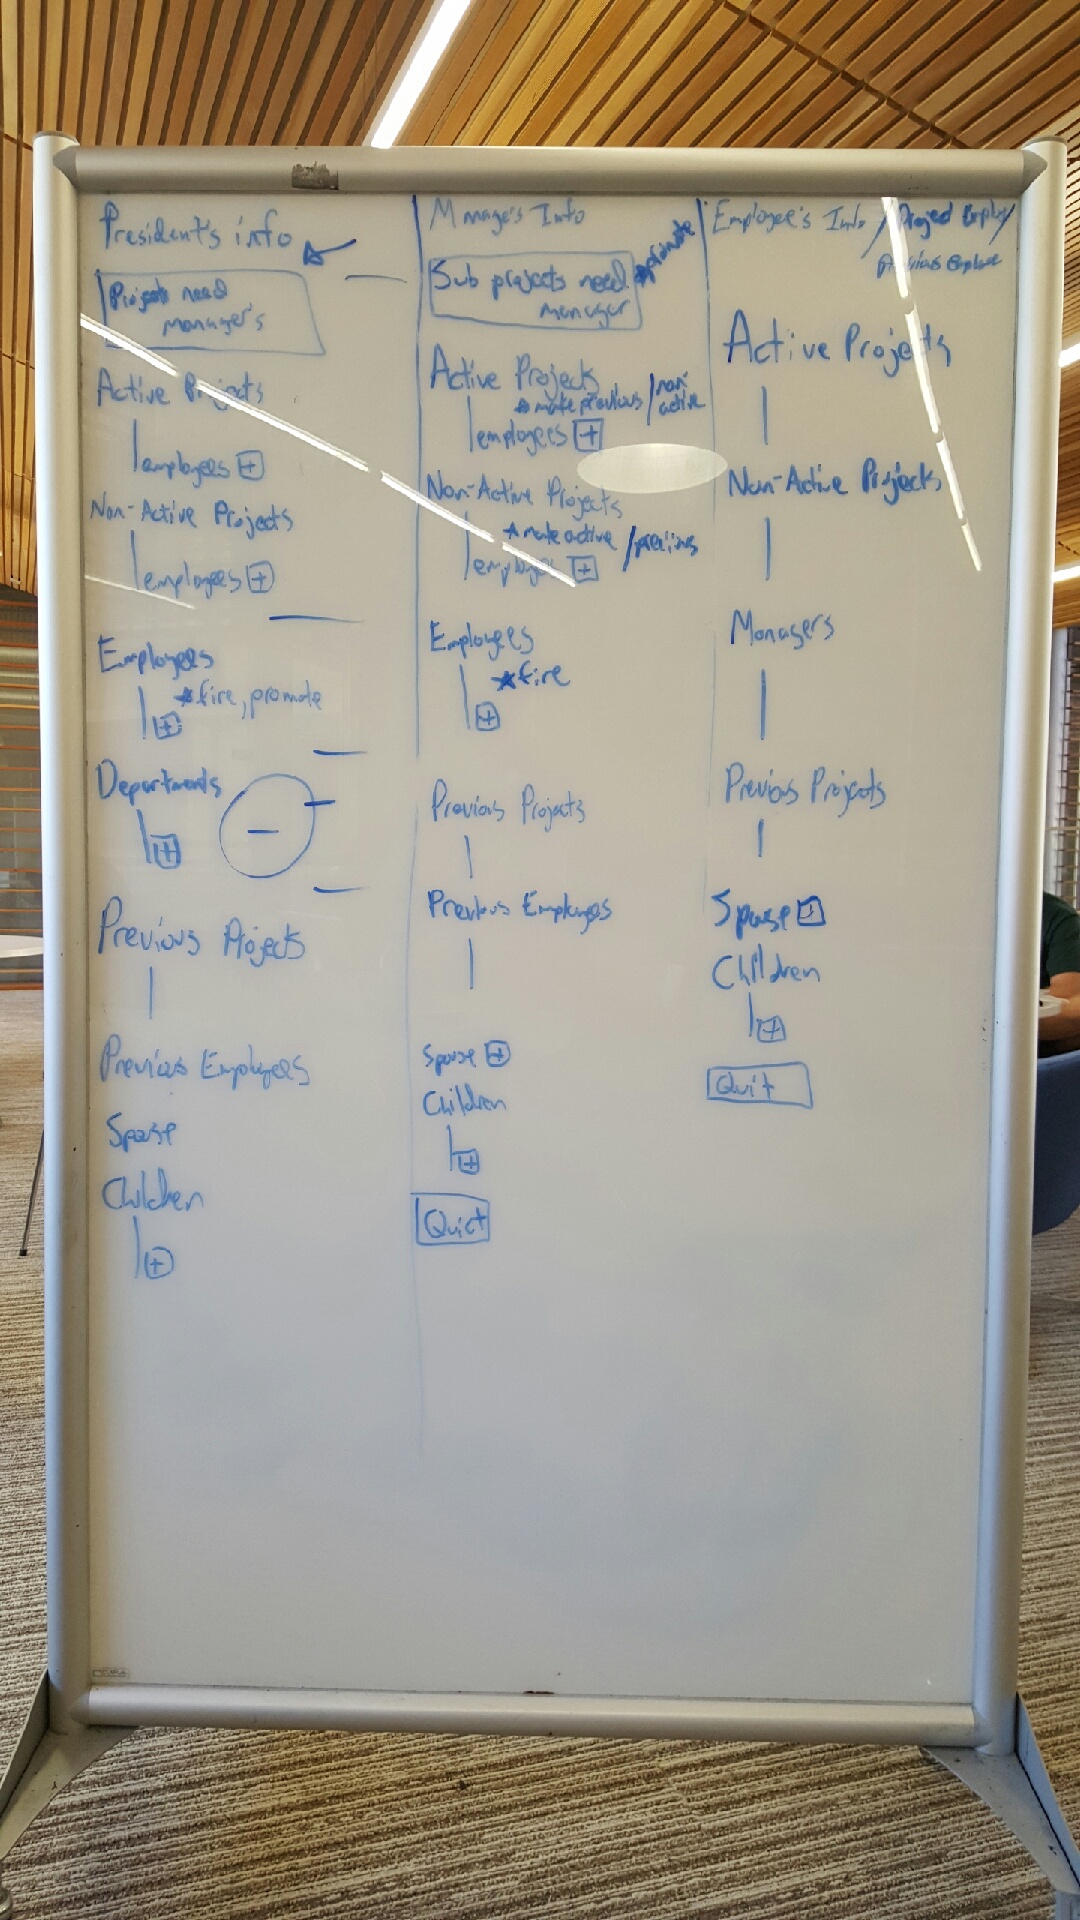 President's info
Projects need
manager's
Active Projects
employees +
Non-Active Projects
employees +
Employees
*fire, promote
+
Departments
+
−
Previous Projects
Previous Employees
Spouse
Children
+
Manage's Info
Sub projects need
manager
*promote
Active Projects
*make previous / non-
active
employees +
Non-Active Projects
*make active /
+
Employees
*fire
+
Previous Projects
Previous Employees
Spouse +
Children
+
Quict
Employee's Info / Project Employ/
Previous Employee
Active Projects
Non-Active Projects
Managers
Previous Projects
Spouse
Children
+
Quit